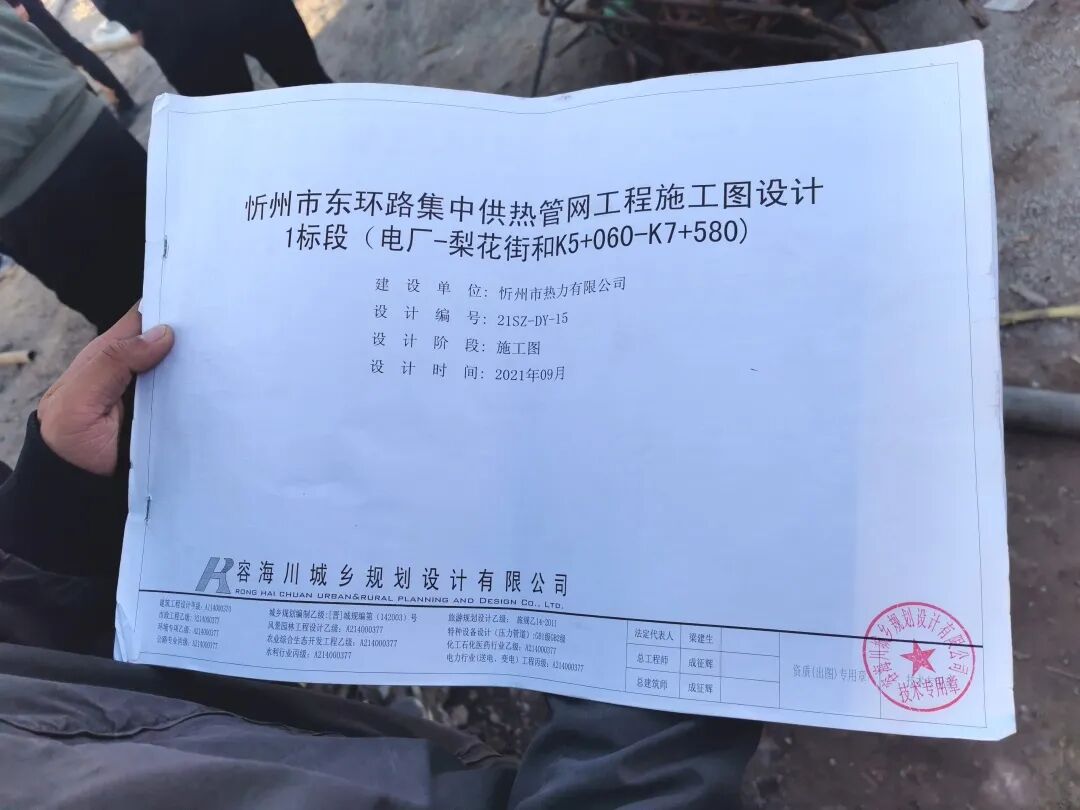 忻州市东环路集中供热管网工程施工图设计
1标段（电厂-梨花街和K5+060-K7+580）
建设单位：忻州市热力有限公司
设计编号：21SZ-DY-15
设计阶段：施工图
设计时间：2021年09月
容海川城乡规划设计有限公司
RONG HAI CHUAN URBAN&RURAL PLANNING AND DESIGN CO., LTD.
建筑工程设计甲级：A114000370
市政工程乙级：A214000377
环境专项乙级：A214000377
公路专业丙级：A214000377
城乡规划编制乙级：[晋]城规编第（142003）号
风景园林工程设计乙级：A214000377
农业综合生态开发工程乙级：A214000377
水利行业丙级：A214000377
旅游规划设计乙级：旅规乙14-2011
特种设备设计（压力管道）：GB1级GB2级
化工石化医药行业乙级：A214000377
电力行业(送电、变电)工程丙级：A214000377
法定代表人 梁建生
总工程师 成征辉
总建筑师 成征辉
资质(出图)专用章
容海川城乡规划设计有限公司
技术专用章